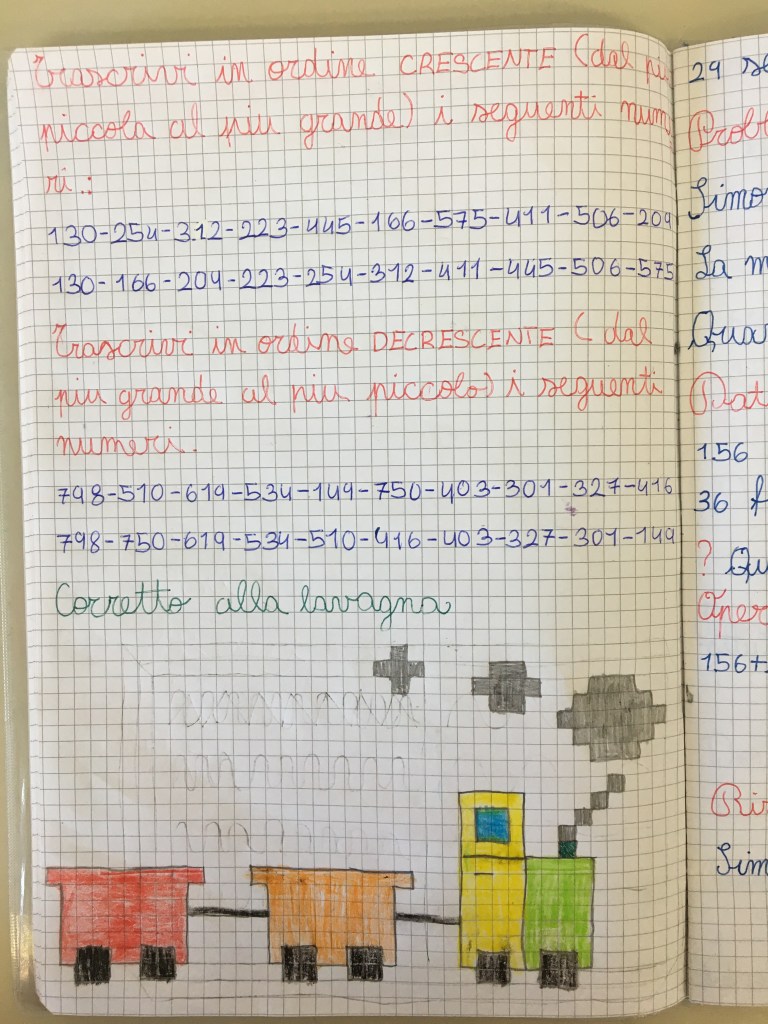 Trascrivi in ordine CRESCENTE (dal più
piccola al piu grande) i seguenti nume
ri.:
130-254-312-223-445-166-575-411-506-204
130-166-204-223-254-312-411-445-506-575
Trascrivi in ordine DECRESCENTE ( dal
piu grande al piu piccolo) i seguenti
numeri.
798-510-619-534-149-750-403-301-327-416
798-750-619-534-510-416-403-327-301-149
Corretto alla lavagna
29 se
Prob
Simo
La m
Qua
Dat
156
36 f
? Qu
Oper
156+
Ris
Sim